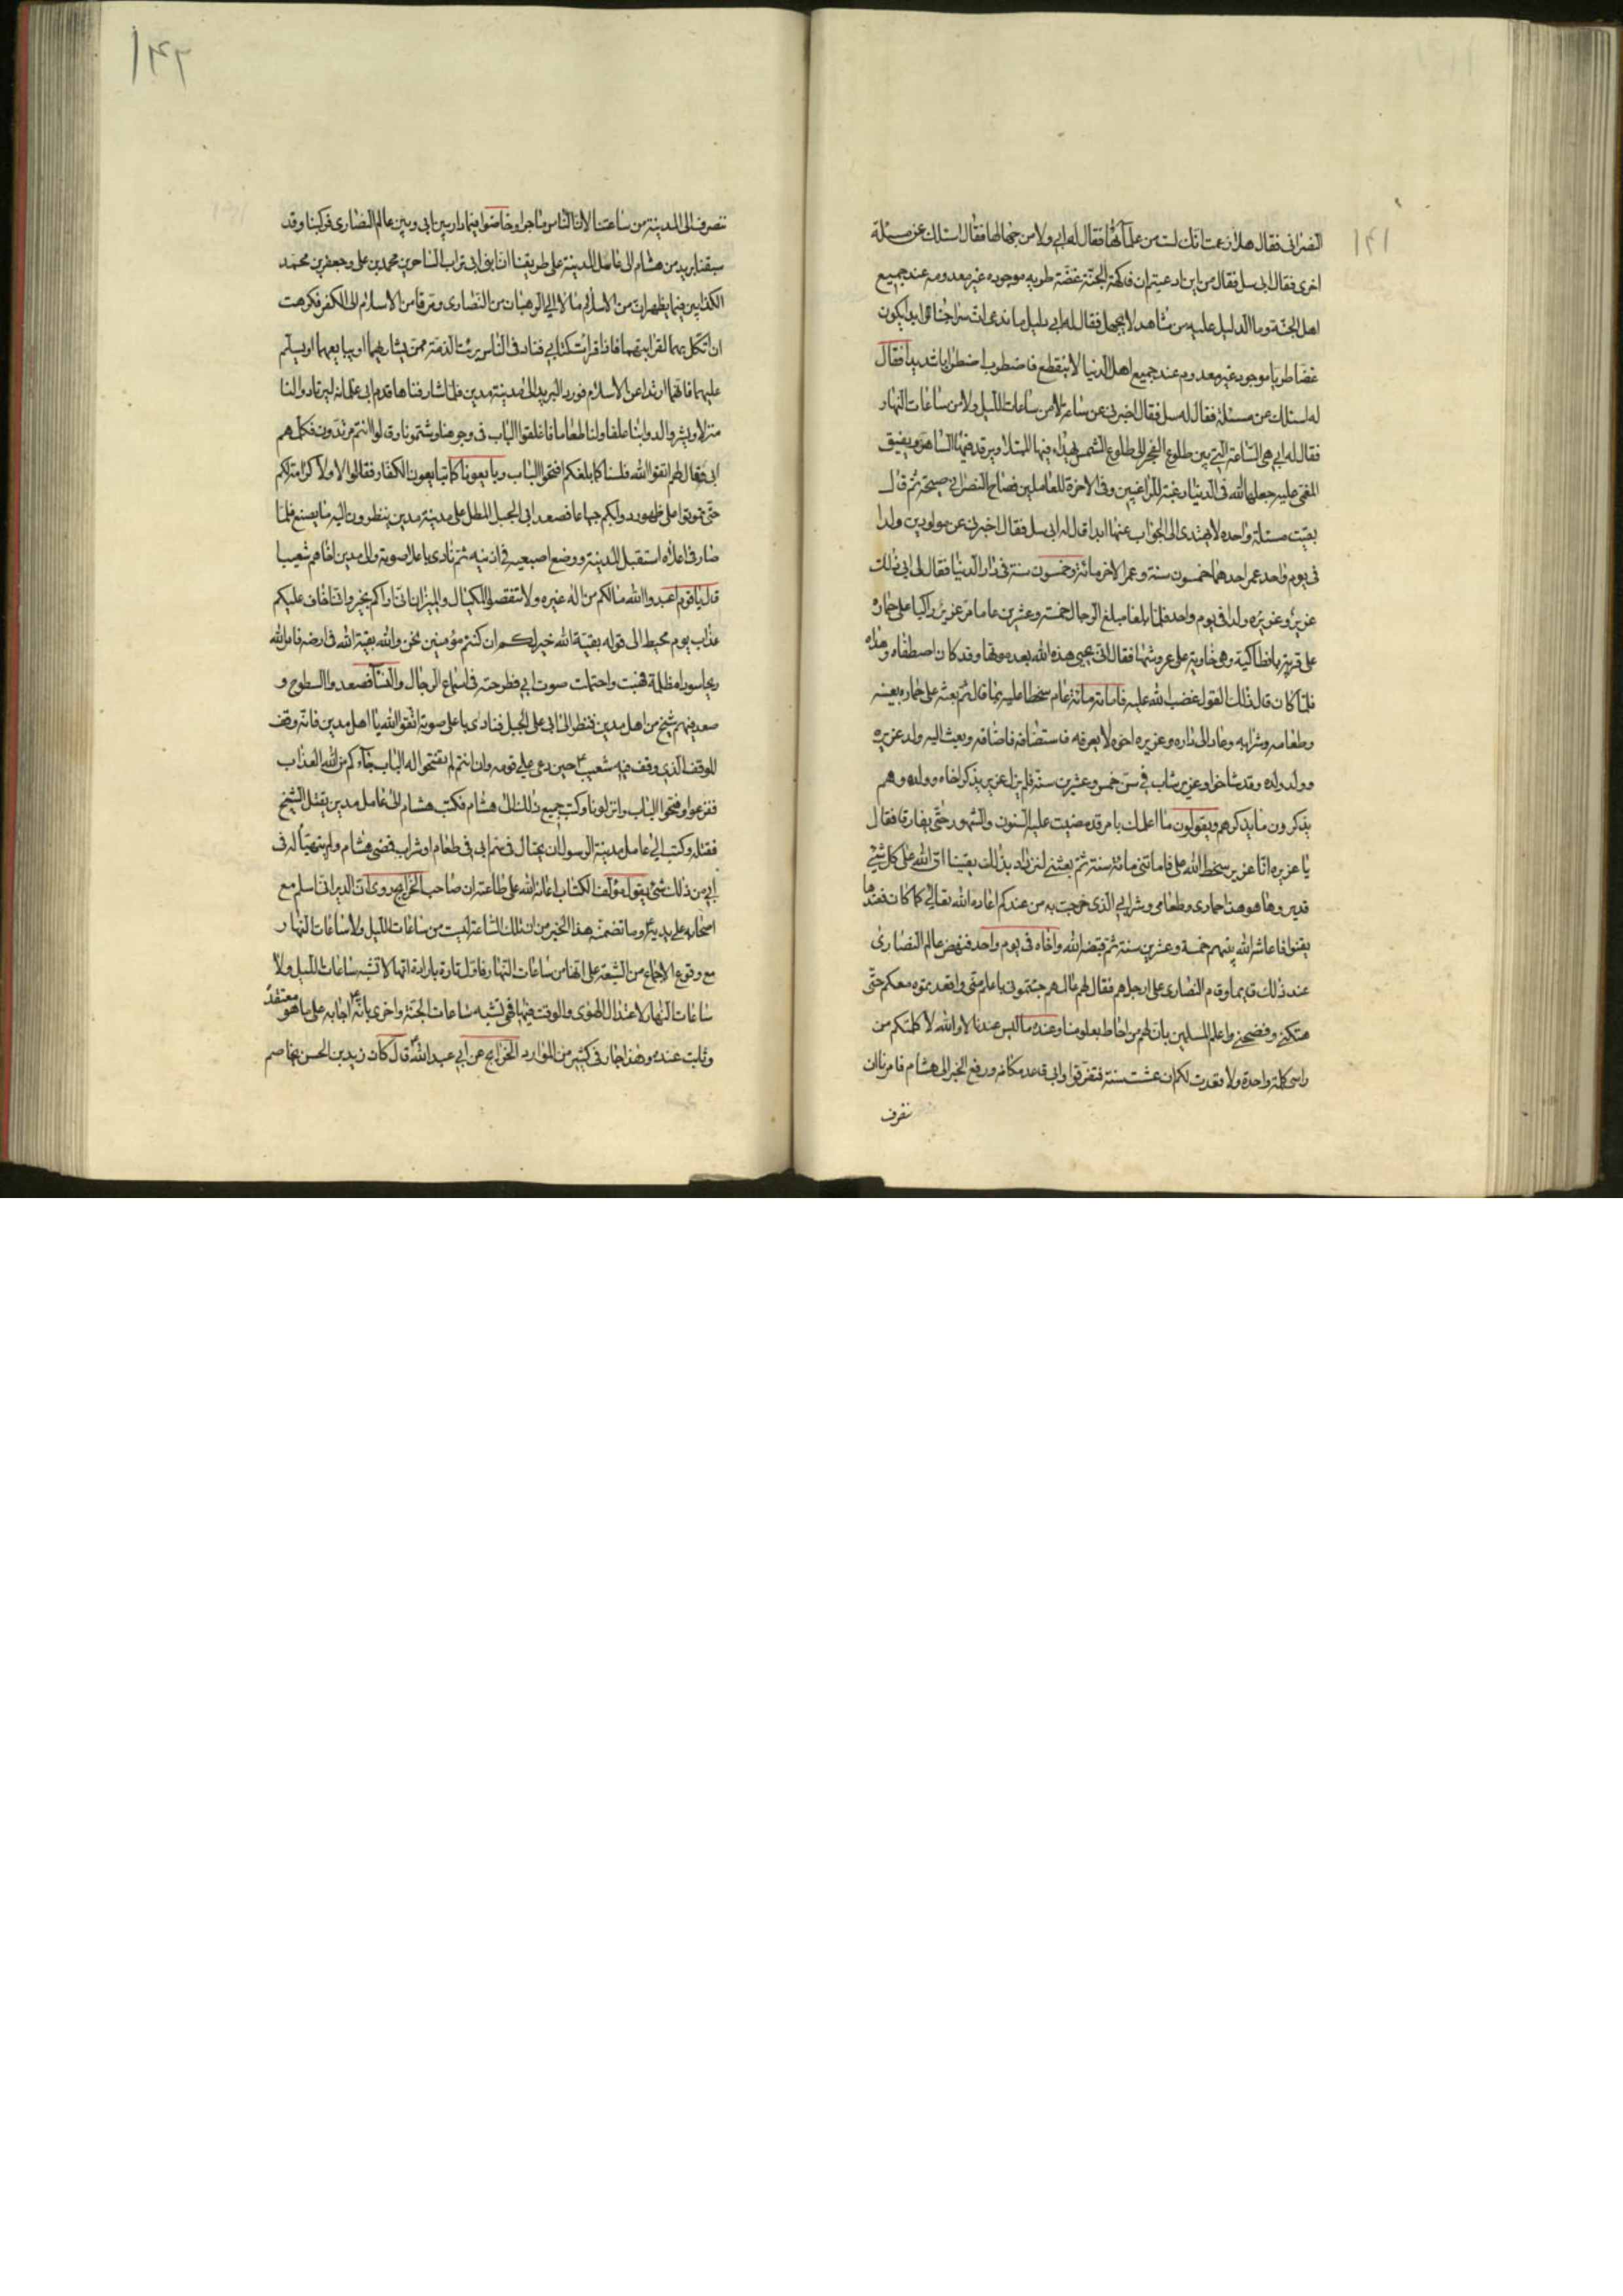 النصرانى فقال هلا زعمت انك لست من علمآئها فقال له ابى ولا من جهالها فقال اسئلك عن مسئلة
اخرى فقال ابى سل فقال من اين ادعيتم ان فاكهة الجنّة غضّة طريه موجوده غير معدومه عند جميع
اهل الجنّة وما الدليل عليه من مشاهد لا يجهل فقال له ابى دليل ما ندعى انّ سراجنا ابدا يكون
غضا طريا موجود غير معدوم عند جميع اهل الدنيا لا ينقطع فاضطرب اضطرابا شديدا فقال
له اسئلك عن مسئلة فقال له سل فقال اخبرنى عن ساعة لا من ساعات الليل ولا من ساعات النهار
فقال له ابى هى الساعة التى بين طلوع الفجر الى طلوع الشمس يهدأ فيها المبتلا ويرقد فيها الساهر ويفيق
المغمى عليه جعلها الله فى الدنيا رغبة للراغبين وفى الاخرة للعاملين فصاح النصرانى صيحة ثم قال
بقيت مسئلة واحده لا يهتدى الى الجواب عنها ابدا قال له ابى سل فقال اخبرنى عن مولودين ولدا
فى يوم واحد عمر احدهما خمسون سنة وعمر الاخر مائة وخمسون سنة فى دار الدنيا فقال له ابى ذلك
عزير وعزيره ولدا فى يوم واحد فلما بلغا مبلغ الرجال خمسة وعشرين عاما مرّ عزير راكبا على حماره
على قرية بانطاكية وهى خاوية على عروشها فقال انّى يحيى هذه الله بعد موتها وقد كان اصطفاه وهداه
فلمّا كان قال ذلك القول غضب الله عليه فاماته مائة عام سخطا عليه بما قال ثم بعثه على حماره بعينه
وطعامه وشرابه وعاد الى داره وعزيره اخوه لا يعرفه فاستضافه فاضافه وبعث اليه ولد عزيره
وولد ولده وقد شاخوا وعزير شاب فى سنّ خمس وعشرين سنة فلم يزل عزير يذكر اخاه وولده وهم
يذكرون ما يذكرهم ويقولون ما اعلمك بامر قد مضيت عليه السنون والشهور حتّى يفارقا فقال
يا عزيره انا عزير سخط الله علىّ فاماتنى مائة سنة ثمّ بعثنى لتزداد بذالك يقينا انّ الله على كل شئ
قدير وها هو هذا حمارى وطعامى وشرابى الذى خرجت به من عندكم اعاده الله تعالى كما كان فعندها
يقنوا فاعاشه الله بينهم خمسة وعشرين سنة ثمّ قبضه الله واخاه فى يوم واحد فنهض عالم النصارى
عند ذلك قايما وقام النصارى على ارجلهم فقال لهم عالمهم جئتمونى باعلم منّى واقعدتموه معكم حتّى
هتكنى وفضحنى واعلم المسلمين بان لهم من احاط بعلومنا وعنده ما ليس عندنا لا والله لا كلمتكم من
راسى كلمة واحدة ولا قعدت لكم ان عشت سنة فتفرقوا وابى قاعد مكانه ورفع الخبر الى هشام فامرنا ان
ننصرف
ننصرف الى المدينة من ساعتنا لان الناس ماجوا وخاضوا فيما دار بين ابى وبين عالم النصارى فركبنا وقد
سبقنا بريد من هشام الى عامل المدينة على طريقنا ان ابنى ابى تراب الساحرين محمد بن على وجعفر بن محمد
الكذابين فيما يظهران من الاسلام مالا الى الرهبان من النصارى ومرقا من الاسلام الى الكفر فكرهت
ان انكل بهما لقرابتهما فاذا قرات كتابى فناد فى الناس برئت الذمة ممن يشاريهما او يبايعهما او يسلّم
عليهما فانهما ارتدا عن الاسلام فورد البريد الى مدينة مدين فلما شارفناها قدم ابى غلمانه ليرتادوا لنا
منزلا ويشروا لدوابنا علفا ولنا طعاما فاغلقوا الباب فى وجوهنا وشتمونا وقالوا انتم مرتدون فكلمهم
ابى فقال لهم اتقوا الله فلسنا كما بلغكم افتحوا الباب وبايعونا كما تبايعون الكفار فقالوا لا ولا كرامة لكم
حتّى تموتوا على ظهور دوابكم جياعا فصعد ابى الجبل المطل على مدينة مدين ينظرون اليه ما يصنع فلما
صار فى اعلاه استقبل المدينة ووضع اصبعيه فى اذنيه ثم نادى باعلا صوته والى مدين اخاهم شعيبا
قال يا قوم اعبدوا الله مالكم من اله غيره ولا تنقصوا المكيال والميزان انى اراكم بخير وانى اخاف عليكم
عذاب يوم محيط الى قوله بقيّة الله خير لكم ان كنتم مؤمنين نحن والله بقيّة الله فى ارضه فامر الله
ريحا سودا مظلمة فهبت واحتملت صوت ابى فطرحته فى اسماع الرجال والنسآء فصعدوا السطوح و
صعد فيهم شيخ من اهل مدين فنظر الى ابى على الجبل فنادى باعلى صوته اتقوا الله يا اهل مدين فانه وقف
الموقف الذى وقف فيه شعيب ع حين دعى على قومه وان انتم لم تفتحوا له الباب جآءكم من الله العذاب
ففزعوا وفتحوا الباب وانزلونا وكتب جميع ذلك الى هشام فكتب هشام الى عامل مدين بقتل الشيخ
فقتله وكتب الى عامل مدينة الرسول ان يحتال فى سمّ ابى فى طعام او شراب فمضى هشام ولم يتهيّأ له فى
ابى من ذلك شئ يقول مؤلف الكتاب اعانه الله على طاعته ان صاحب الخرايج روى ان الديرانى اسلم مع
اصحابه على يديه ع وما تضمنه هذا الخبر من ان تلك الساعة ليست من ساعات الليل ولا ساعات النهار
مع وقوع الاجماع من الشيعة على انها من ساعات النهار فاوّل تارة بارادة انها لا تشبه ساعات الليل ولا
ساعات النهار لاعتدال الهوى والوقت فيها فهى تشبه ساعات الجنة واخرى بانّه ع اجابه على ما هو معتقده
وثابت عنده وهذا جار فى كثير من الموارد الخرايج عن ابى عبد الله ع قال كان زيد بن الحسن يخاصم